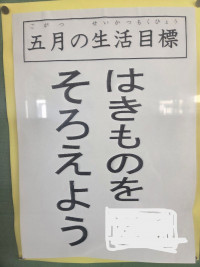 ごがつ せいかつもくひょう
五月の生活目標
はきものを
そろえよう